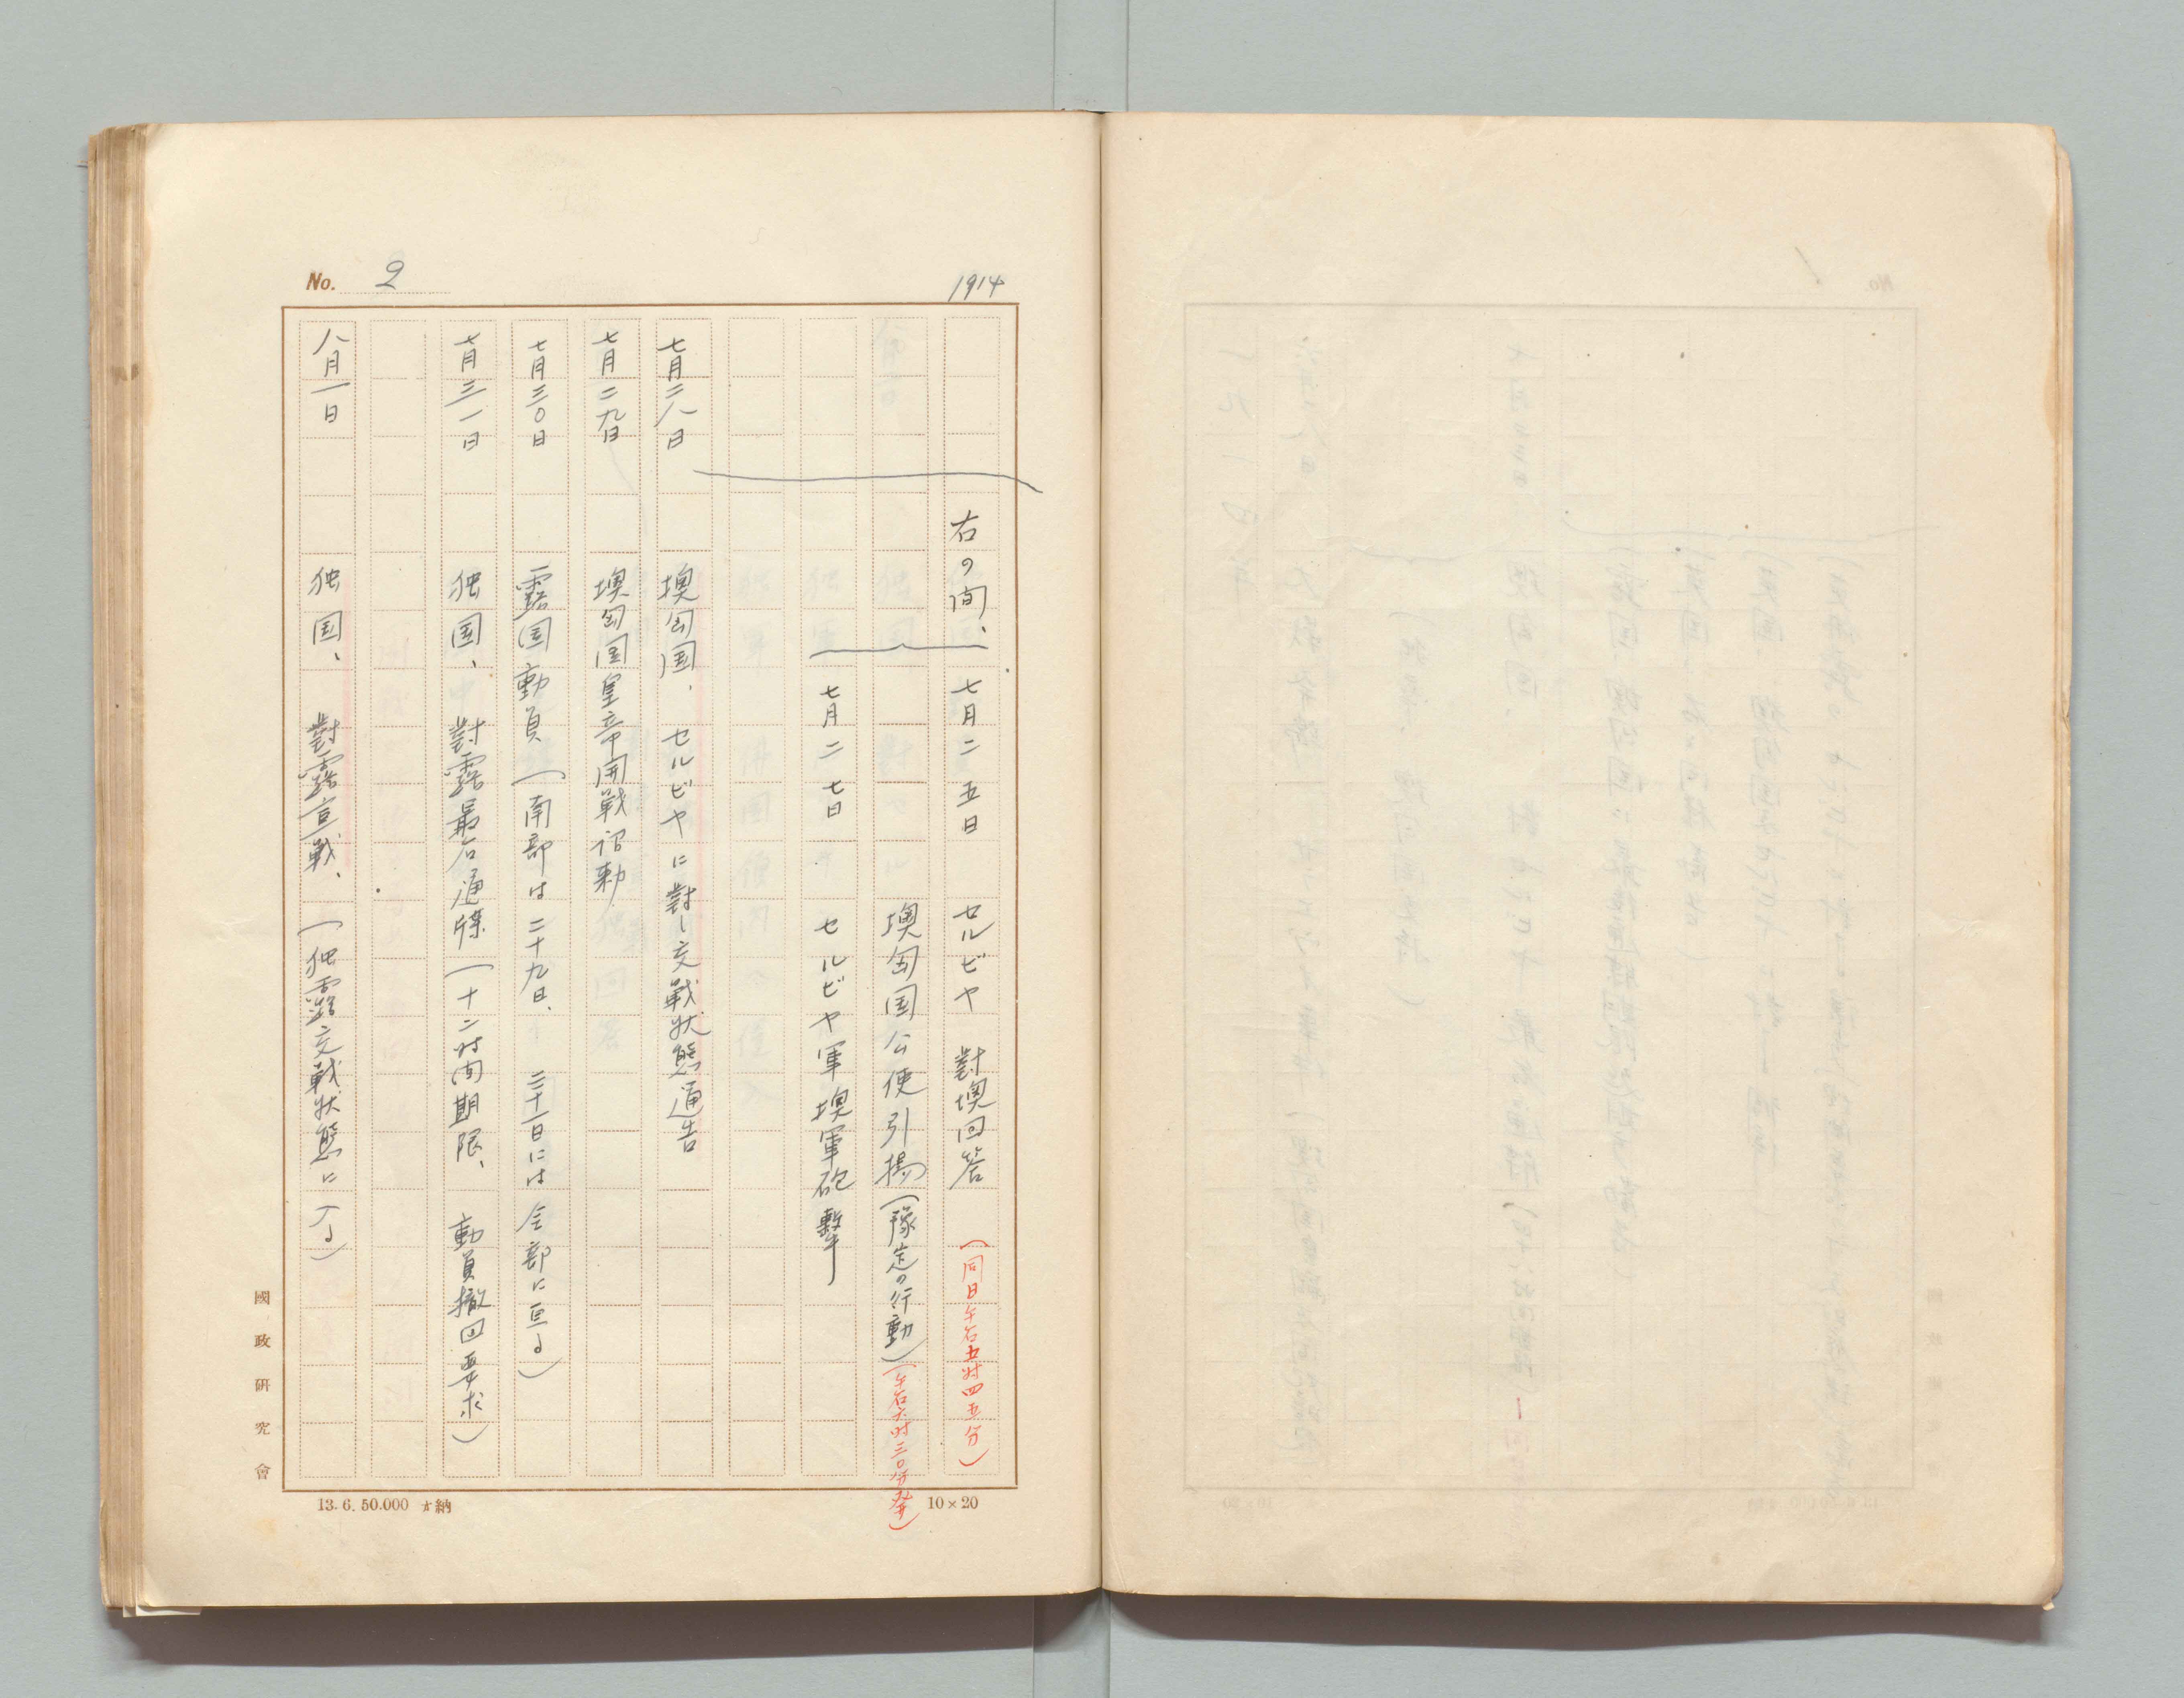 No. 2
1914
右の間、七月二五日 セルビヤ 對墺回答 (同日午后五时四五分)
墺匈国公使引揚(豫定の行動)(午后六时三〇分発)
七月二七日 セルビヤ軍墺軍砲撃
七月二八日 墺匈国、セルビヤに對し交戦状態通告
七月二九日 墺匈国皇帝開戦詔勅
七月三〇日 露国動員(南部は二十九日、三十一日には全部に亘る)
七月三一日 独国、對露最后通牒(十二时间期限、動員撤回要求)
八月一日 独国、對露宣戦、(独露交戦状態に入る)
國政研究會
13. 6. 50.000 納
10×20